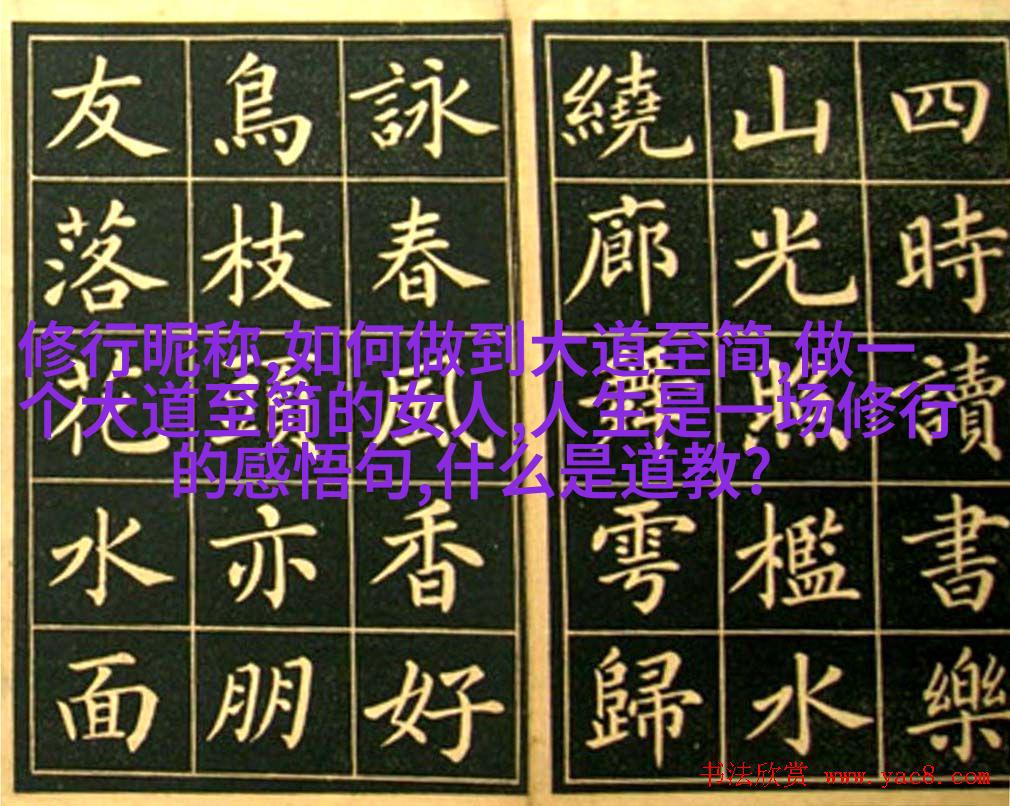 四時讀書樂
山光照檻水
繞廊舞雩歸
詠春風香好
鳥枝頭亦朋
友落花水面
修行昵称,如何做到大道至简,做一
个大道至简的女人,人生是一场修行
的感悟句,什么是道教?
书法欣赏 www.yac8.com